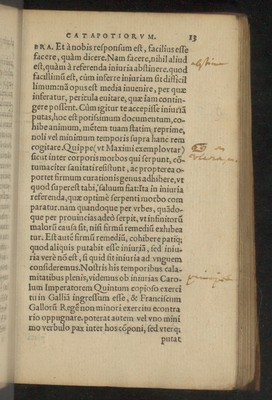 CATAPOTIORVM. 13
BRA. Et à nobis responsum est, facilius esse
facere, quàm dicere. Nam facere, nihil aliud
est, quàm à referenda iniuria abstinere. quod
facillimũ est, cùm inferre iniuriam sit difficil
limum: nã opus est media inuenire, per quæ
inferatur, pericula euitare, quæ iam contin-
gere possent. Cùm igitur te accepisse iniuriã
putas, hoc est potissimum documentum, co-
hibe animum, mẽtem tuam statim reprime,
noli vel minimum temporis supra hanc rem
cogitare. Quippe (vt Maximi exemplo vtar)
sicut inter corporis morbos qui serpunt, cõ-
tumaciter sanitati resistunt, ac propterea o-
portet firmum curationis genus adhibere, vt
quod superest tabi, saluum fiat: Ita in iniuria
referenda, quæ optimè serpenti morbo com
paratur. nam quandoque per vrbes, quãdo-
que per prouincias adeò serpit, vt infinitorũ
malorũ causa sit, nisi firmũ remediũ exhibea
tur. Est autẽ firmũ remediũ, cohibere patiẽ;
quod aliquis putabit esse iniustũ, sed iniu-
ria verè nõ est, si quid sit iniuria ad vnguem
consideremus. Nostris his temporibus cala-
mitatibus plenis, videmus ob iniurias Caro-
lum Imperatorem Quintum copioso exerci
tu in Galliã ingressum esse, & Franciscum
Gallorũ Regẽ non minori exercitu è contra
rio oppugnare. poterat autem vel vno mini
mo verbulo pax inter hos cõponi, sed vterq;
putat